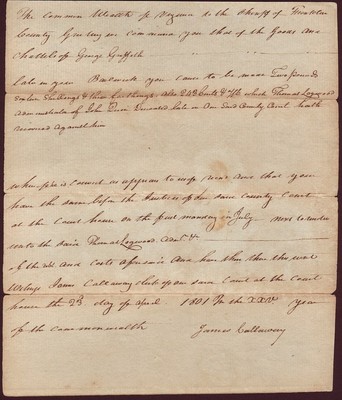 The Common Wealth of Virginia to the Sheriff of Franklin
County Greeting we command you that of the Goods and
Chattels of George Griffith
late in your Bailwick you cause to be made Two pounds
Twelve Shillings & three farthings, also 245 & which Thomas Logwood
administrator of John Deceased late in Our Said County Court hath
recovered against him
whereof he is convict as appears to us of record and that you
have the same before the Justices of our said county Court
at the Court house on the first monday in July next to render
unto the said Thomas Logwood Adm.r &
of the debt and Costs aforesaid and have then there this writ
Witness James Callaway clerk of our said Court at the Court
house the 2d day of April 1801 In the XXV year
of the commonwealth
James Callaway